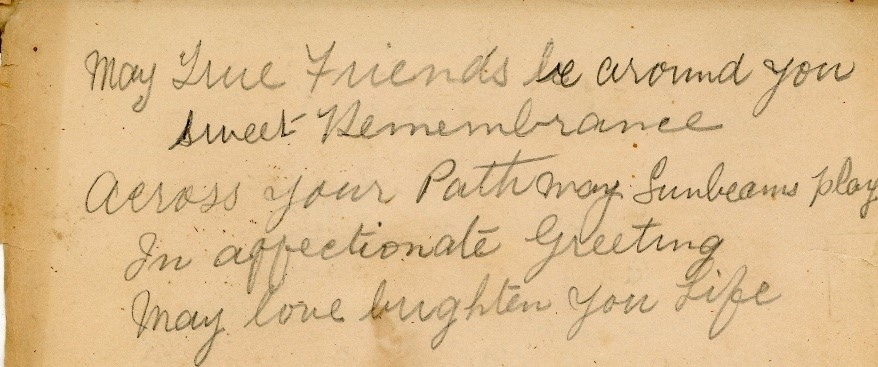 May True Friends be around you
sweet Remembrance
Across your Path may Sunbeams play
In affectionate Greeting
May love brighten you Life